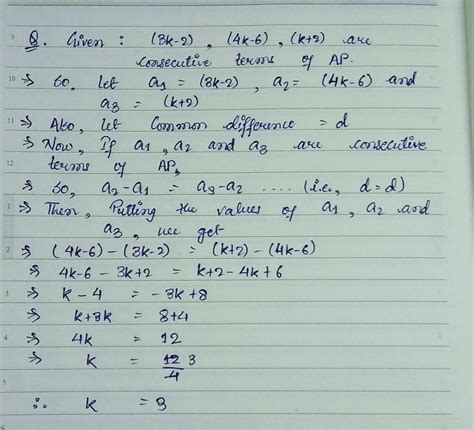 9 Q. Given : (3k-2) , (4k-6) , (k+2) are
consecutive terms of AP.
10 ⇒ So, let a₁ = (3k-2) , a₂ = (4k-6) and
a₃ = (k+2)
11 ⇒ Also, let Common difference = d
⇒ Now, If a₁ , a₂ and a₃ are consecutive
12 terms of AP,
⇒ So, a₂-a₁ = a₃-a₂ .... (i.e., d = d)
1 ⇒ Then, Putting the values of a₁ , a₂ and
a₃ , we get
2 ⇒ (4k-6) - (3k-2) = (k+2) - (4k-6)
⇒ 4k-6 - 3k+2 = k+2 - 4k + 6
3 ⇒ k - 4 = - 3k + 8
⇒ k+3k = 8+4
4 ⇒ 4k = 12
⇒ k = 12/4 3
5
∴ k = 3
6